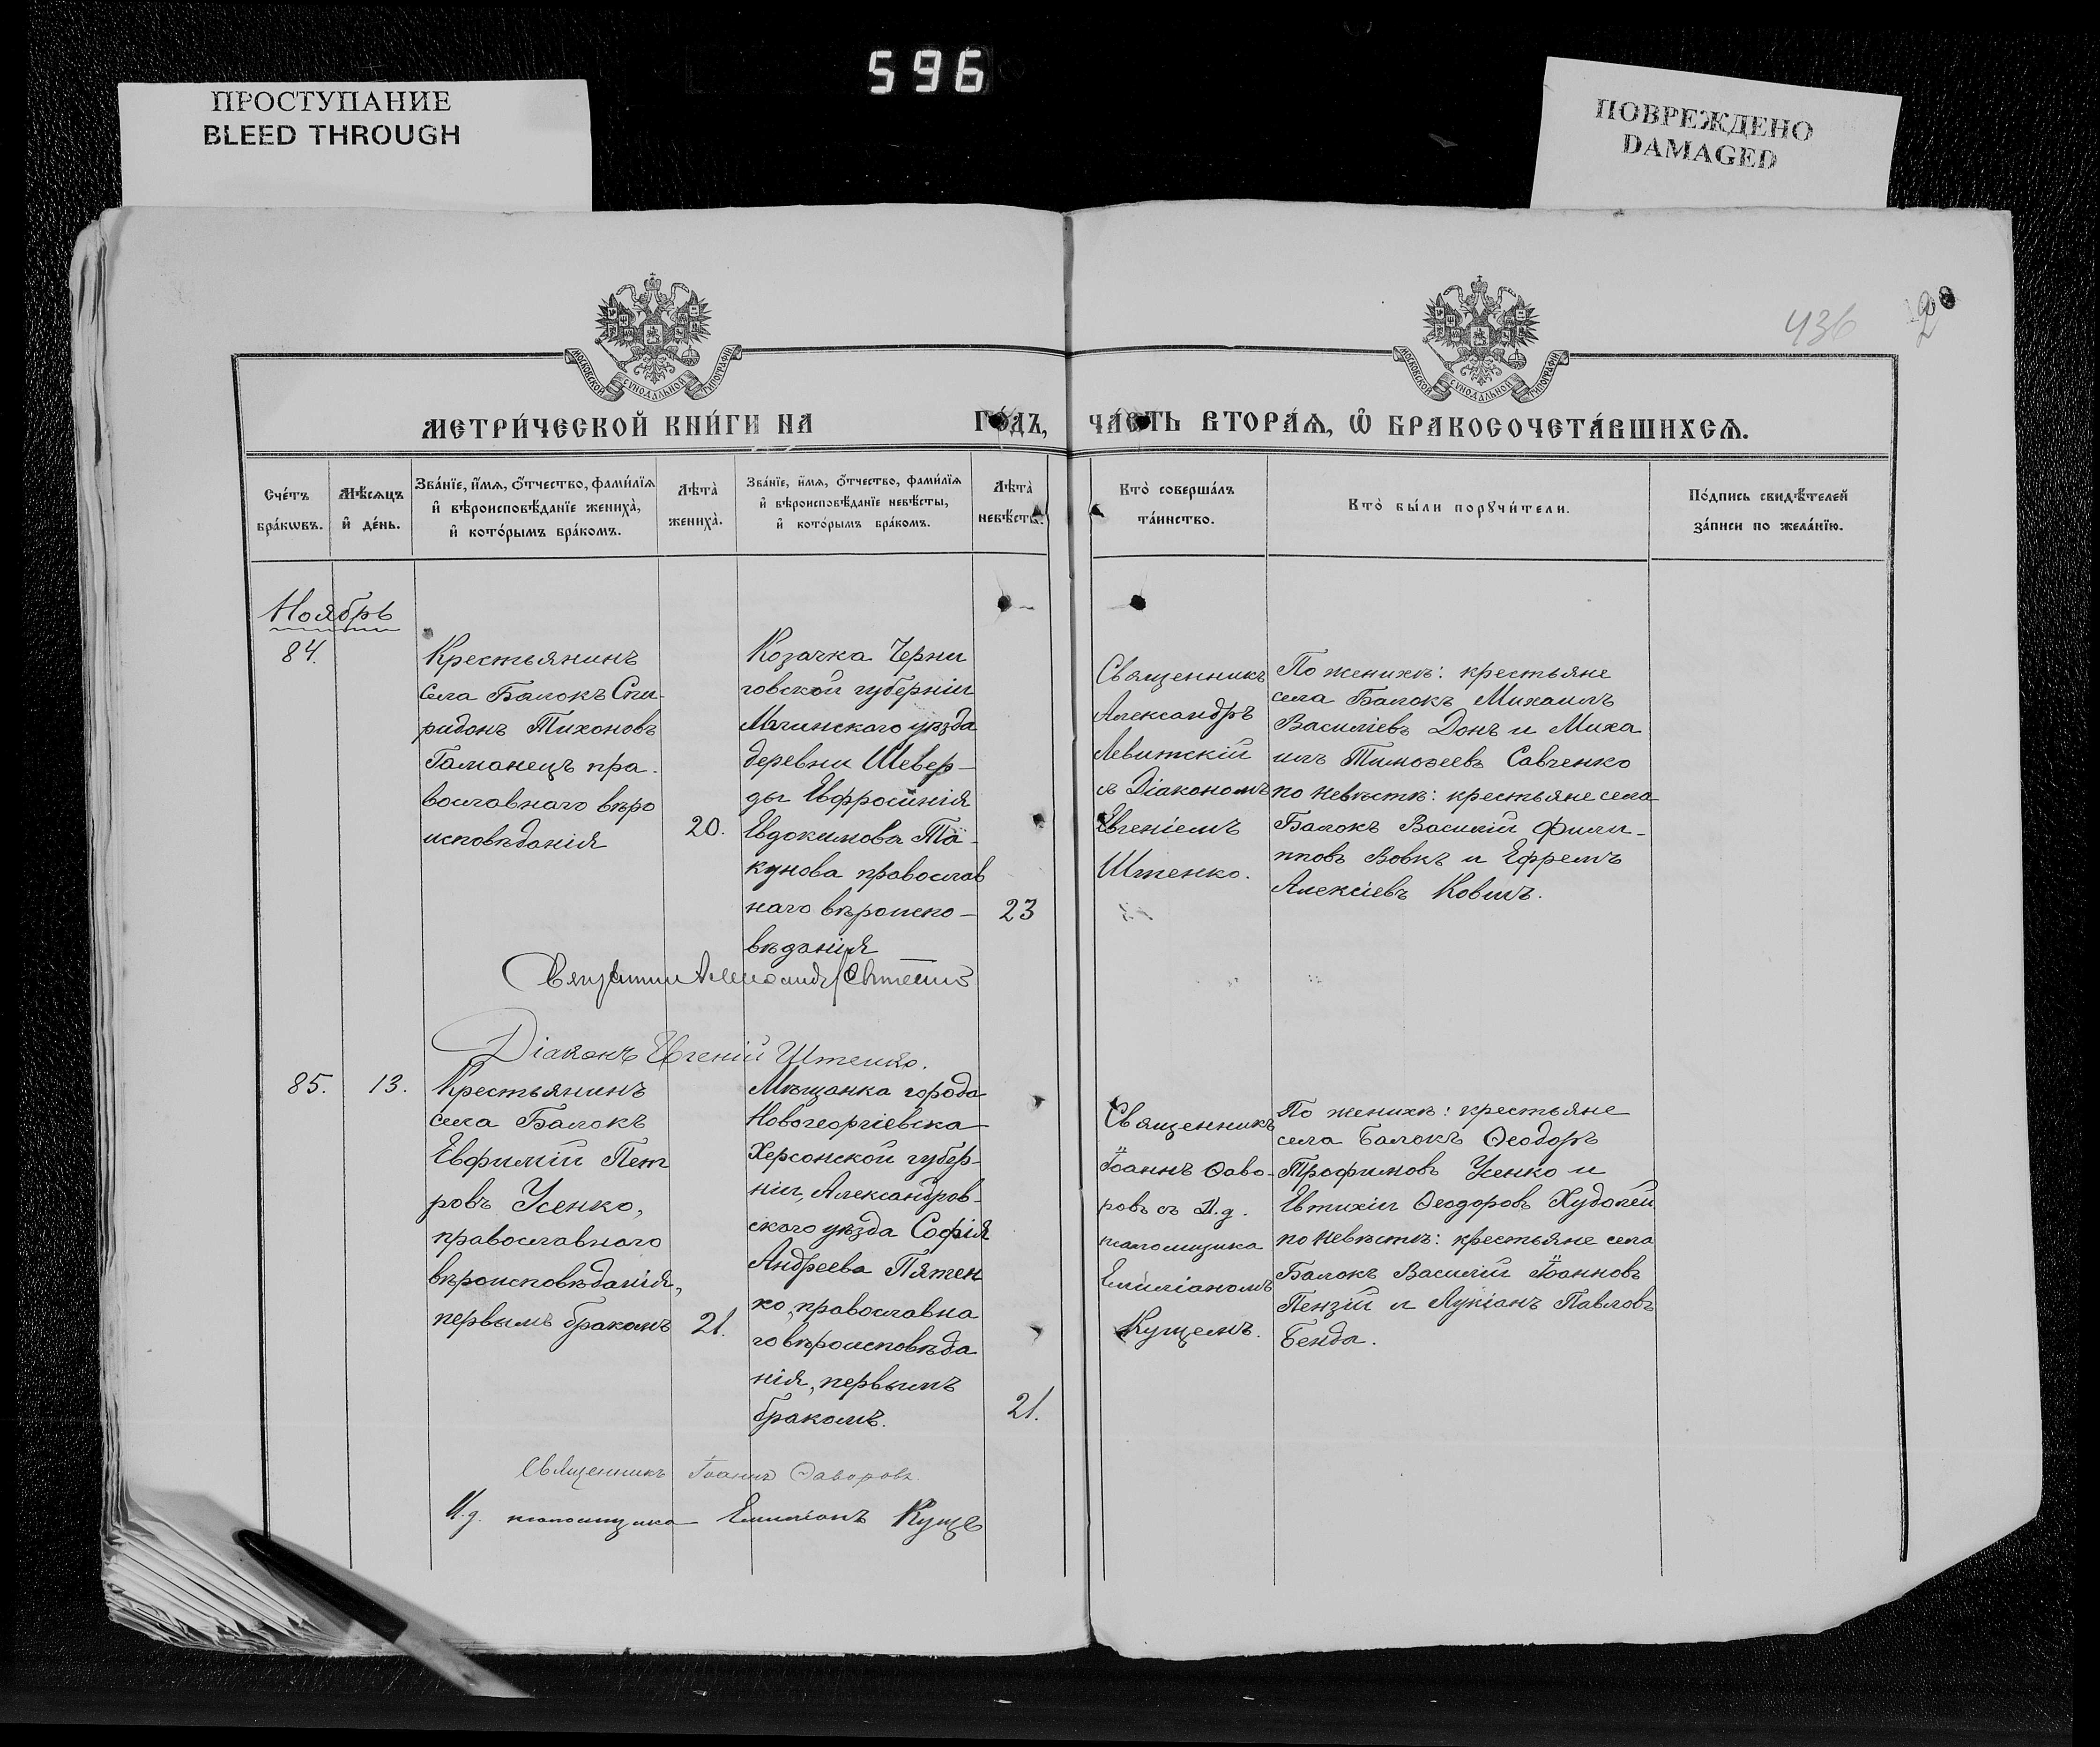 596
ПРОСТУПАНИЕ
BLEED THROUGH
ПОВРЕЖДЕНО
DAMAGED
436
МОСКОВСКОЙ СУНОДАЛЬНОЙ ТИПОГРАФІИ
МОСКОВСКОЙ СУНОДАЛЬНОЙ ТИПОГРАФІИ
МЕТРИ́ЧЕСКОЙ КНИ́ГИ НА ГО́ДЪ,
ЧА́СТЬ ВТОРА́Ѧ, Ѡ҆ БРАКОСОЧЕТА́ВШИХСѦ.
Сче́тъ
бра́кѡвъ.
Мѣ́сѧцъ
и҆ де́нь.
Зва́нїе, и҆́мѧ, о҆́тчество, фами́лїѧ
и҆ вѣроисповѣ́данїе жениха̀,
и҆ кото́рымъ бра́комъ.
Лѣта̀
жениха̀.
Зва́нїе, и҆́мѧ, о҆́тчество, фами́лїѧ
и҆ вѣроисповѣ́данїе невѣ́сты,
и҆ кото́рымъ бра́комъ.
Лѣта̀
невѣ́сты.
Кто̀ соверша́лъ
та́инство.
Кто̀ бы́ли порꙋчи́тели.
По́дпись свидѣ́телей
за́писи по жела́нїю.
Ноябрь
84.
Крестьянинъ
села Балокъ Спи-
ридонъ Тихоновъ
Гаманецъ пра-
вославнаго вѣро
исповѣданія
20.
Козачка Черни
говской губерніи
Мглинскаго уѣзда
деревни Шевер-
ды Евфросинія
Евдокимова Та-
кунова православ
наго вѣроиспо-
вѣданія
23
Священникъ
Александръ
Левитскій
съ Діакономъ
Евгеніемъ
Штенко.
По женихѣ: крестьяне
села Балокъ Михаилъ
Василіевъ Донъ и Миха
илъ Тимоѳеевъ Савченко
по невѣстѣ: крестьяне села
Балокъ Василій Фили-
пповъ Вовкъ и Ефремъ
Алексіевъ Ковшъ.
Діаконъ Евгеній Штенко.
85. 13.
Крестьянинъ
села Балокъ
Евфимій Пет
ровъ Усенко,
православнаго
вѣроисповѣданія,
первымъ бракомъ
21.
Мѣщанка города
Новогеоргіевска
Херсонской губер-
ніи, Александров-
скаго уѣзда Софія
Андреева Пятен
ко, православна
го вѣроисповѣда
нія, первымъ
бракомъ.
21.
Священникъ
Іоаннъ Ѳаво-
ровъ съ И.д.
псаломщика
Емиліаномъ
Кущемъ.
По женихѣ: крестьяне
села Балокъ Ѳеодоръ
Трофимовъ Усенко и
Евтихій Ѳеодоровъ Худолей
по невѣстѣ: крестьяне села
Балокъ Василій Іоанновъ
Пензій и Лукіанъ Павловъ
Бенда.
Священникъ Іоаннъ Ѳаворовъ.
И.д. псаломщика Емиліанъ Кущъ